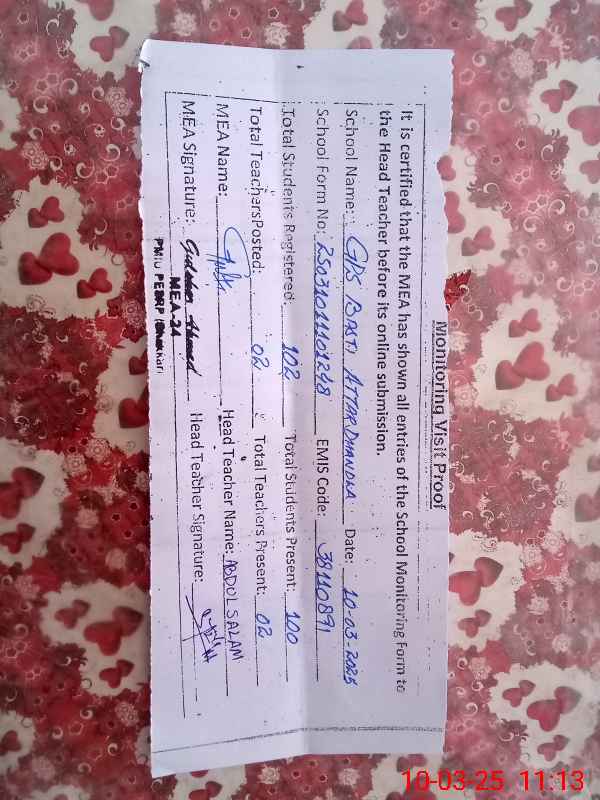 Monitoring Visit Proof
It is certified that the MEA has shown all entries of the School Monitoring Form to
the Head Teacher before its online submission.
School Name: GPS BASTI ATTAR DHANDLA Date: 10-03-2025
School Form No: EMIS Code: 38110891
Total Students Registered: 102 Total Students Present: 100
Total TeachersPosted: 02 Total Teachers Present: 02
MEA Name: Head Teacher Name: ABDUL SALAM
MEA Signature: Ahmed Head Teacher Signature:
MEA-24
PMIU PESRP (Bhakkar)
10-03-25 11:13